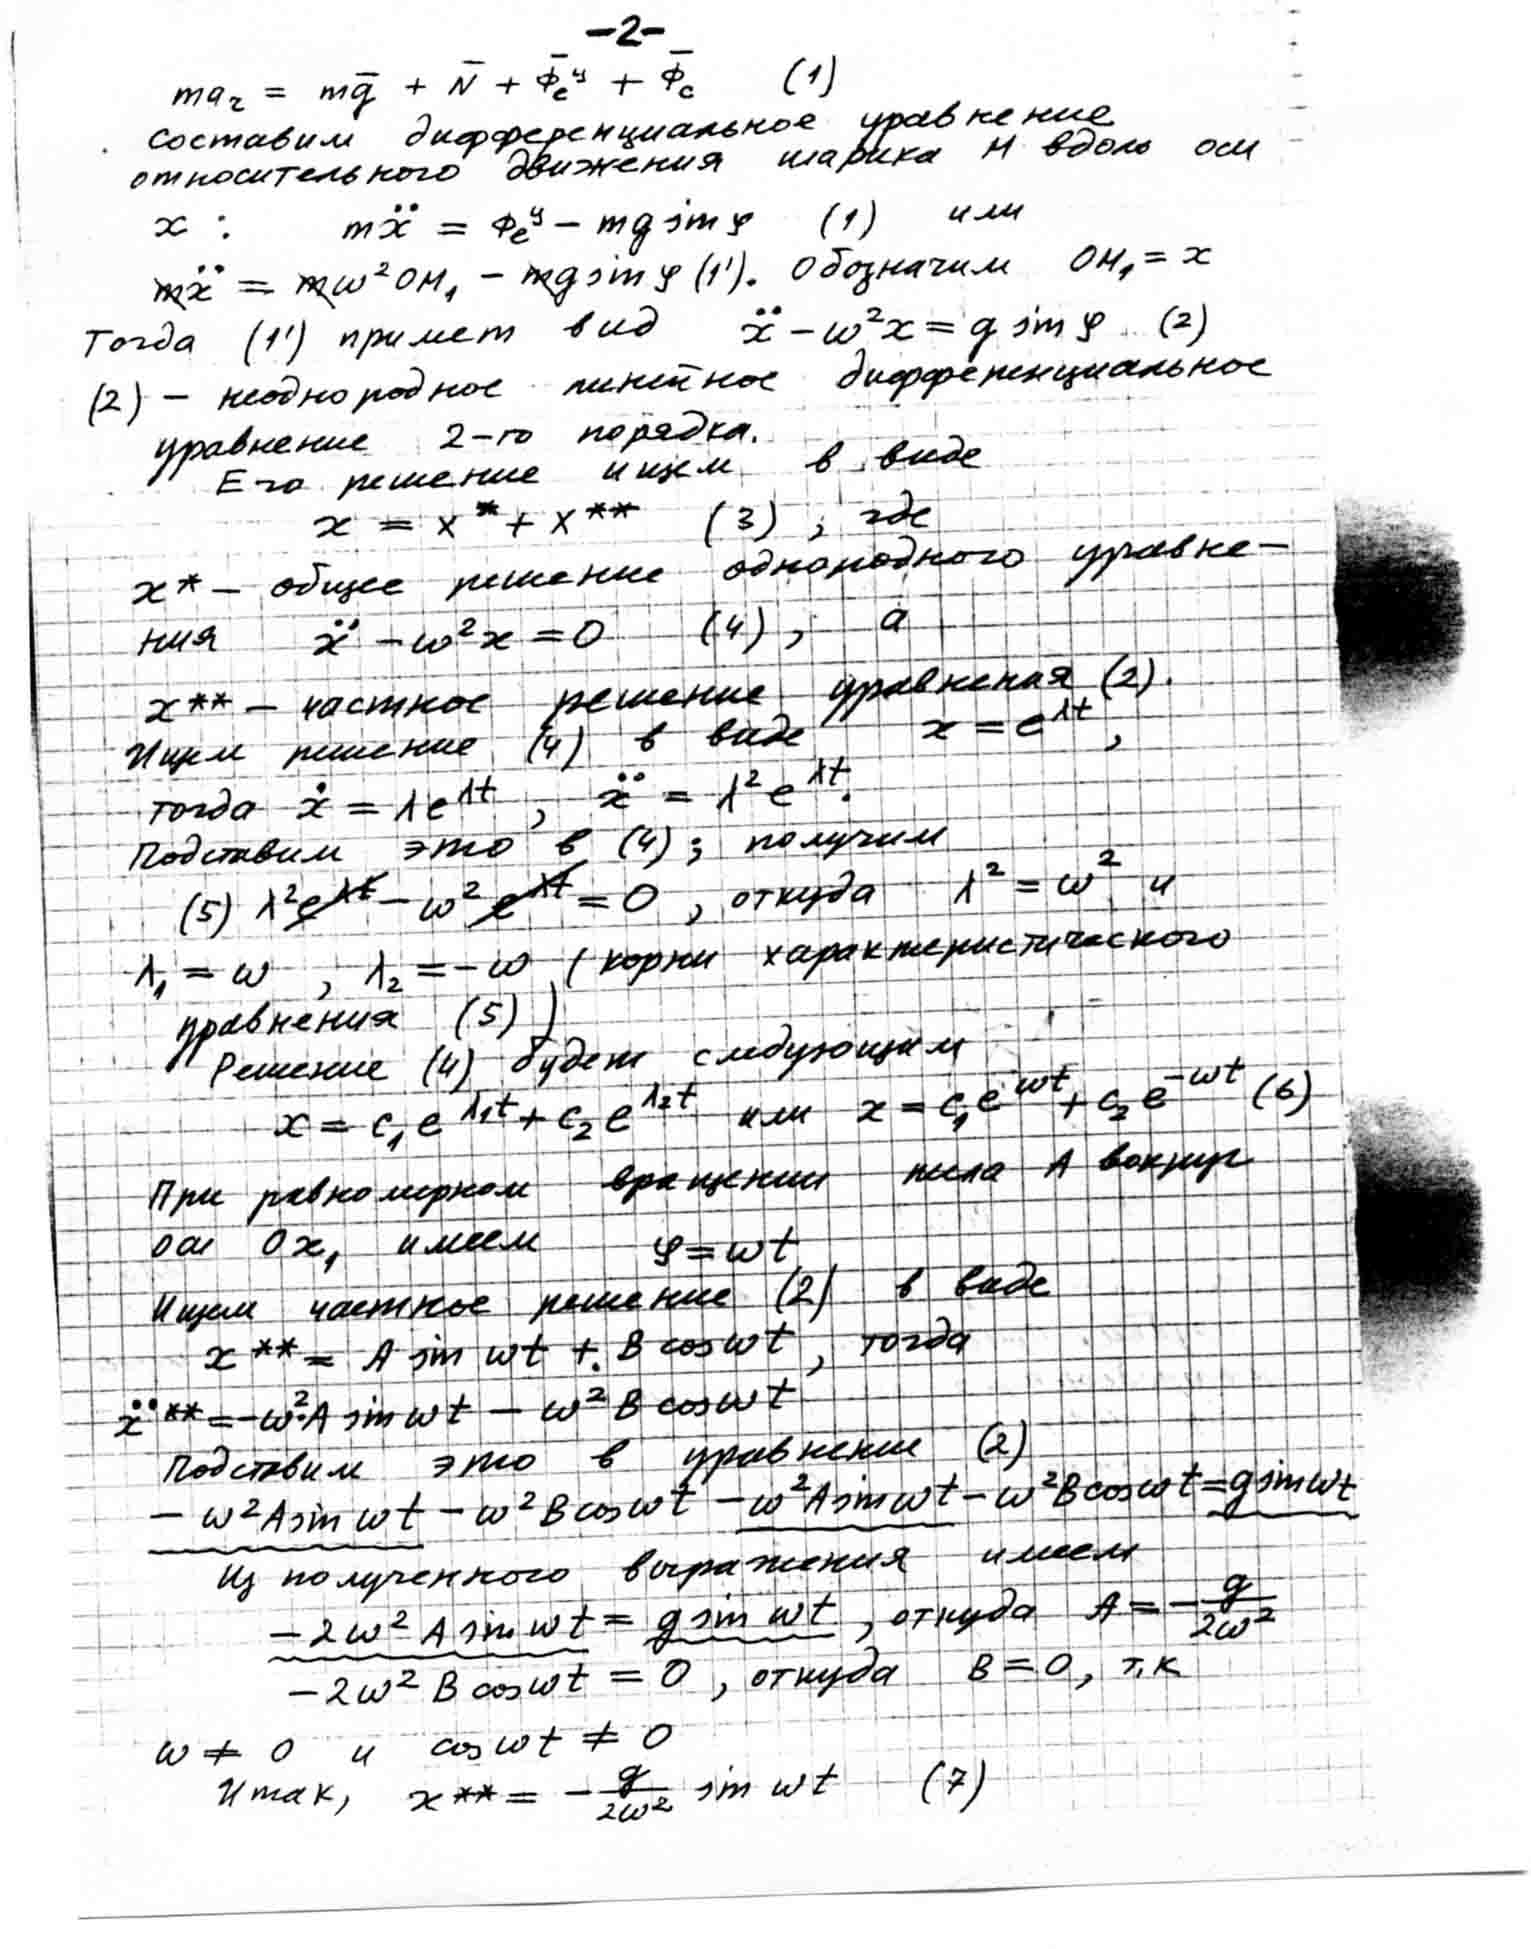 -2-
ma_r = mḡ + N̄ + Φ̄_e^ц + Φ̄_c (1)
Составим дифференциальное уравнение
относительного движения шарика М вдоль оси
x : mẍ = Φ_e^ц - mg sin φ (1) или
mẍ = mω² OM₁ - mg sin φ (1'). Обозначим OM₁ = x
Тогда (1') примет вид ẍ - ω²x = g sin φ (2)
(2) - неоднородное линейное дифференциальное
уравнение 2-го порядка.
Его решение ищем в виде
x = x* + x** (3), где
x* - общее решение однородного уравне-
ния ẍ - ω²x = 0 (4), а
x** - частное решение уравнения (2).
Ищем решение (4) в виде x = e^{λt},
тогда ẋ = λe^{λt}, ẍ = λ²e^{λt}.
Подставим это в (4); получим
(5) λ²e^{λt} - ω²e^{λt} = 0, откуда λ² = ω² и
λ₁ = ω, λ₂ = -ω (корни характеристического
уравнения (5))
Решение (4) будет следующим
x = c₁e^{λ₁t} + c₂e^{λ₂t} или x = c₁e^{ωt} + c₂e^{-ωt} (6)
При равномерном вращении тела А вокруг
оси Ox₁ имеем φ = ωt
Ищем частное решение (2) в виде
x** = A sin ωt + B cos ωt, тогда
ẍ** = -ω²A sin ωt - ω²B cos ωt
Подставим это в уравнение (2)
-ω²A sin ωt - ω²B cos ωt - ω²A sin ωt - ω²B cos ωt = g sin ωt
Из полученного выражения имеем
-2ω²A sin ωt = g sin ωt, откуда A = -g/2ω²
-2ω²B cos ωt = 0, откуда B = 0, т.к
ω ≠ 0 и cos ωt ≠ 0
Итак, x** = -g/2ω² sin ωt (7)